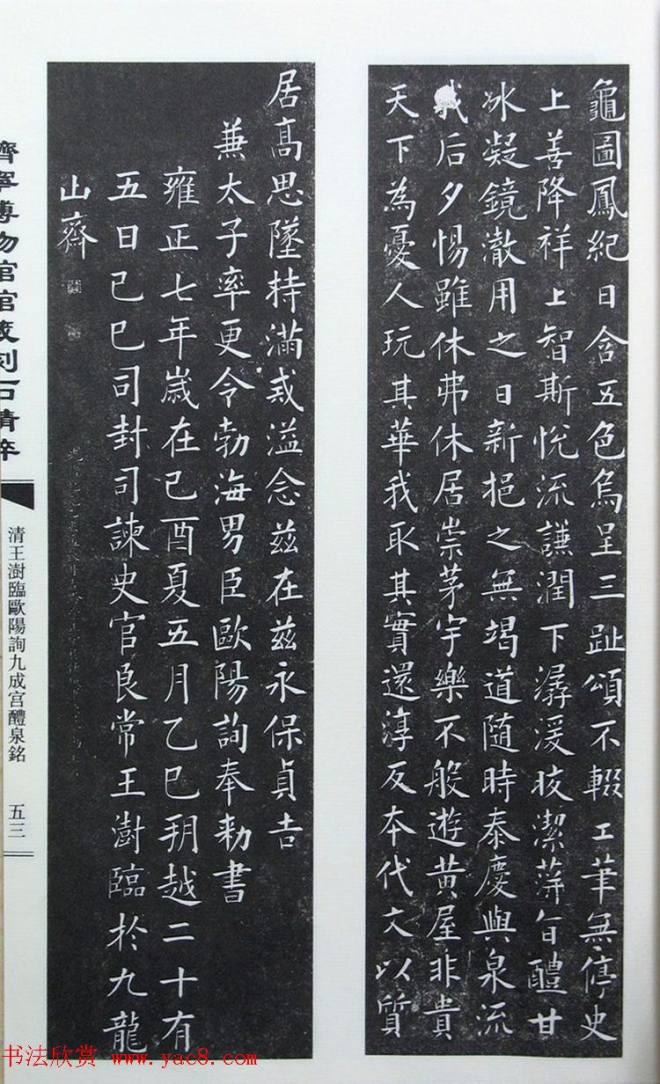 龜圖鳳紀日含五色烏呈三趾頌不輟工筆無停史
上善降祥上智斯悅流謙潤下潺湲皎潔蓱旨醴甘
冰凝鏡澈用之日新挹之無竭道隨時泰慶與泉流
我后夕惕雖休弗休居崇茅宇樂不般遊黃屋非貴
天下為憂人玩其華我取其實還淳反本代文以質
居高思墜持滿戒溢念茲在茲永保貞吉
兼太子率更令勃海男臣歐陽詢奉勅書
雍正七年歲在己酉夏五月乙巳朔越二十有
五日己巳司封司諫史官良常王澍臨於九龍
山齋
濟寧博物館館藏刻石精萃
清王澍臨歐陽詢九成宮醴泉銘
五三
书法欣赏 www.yac8.com